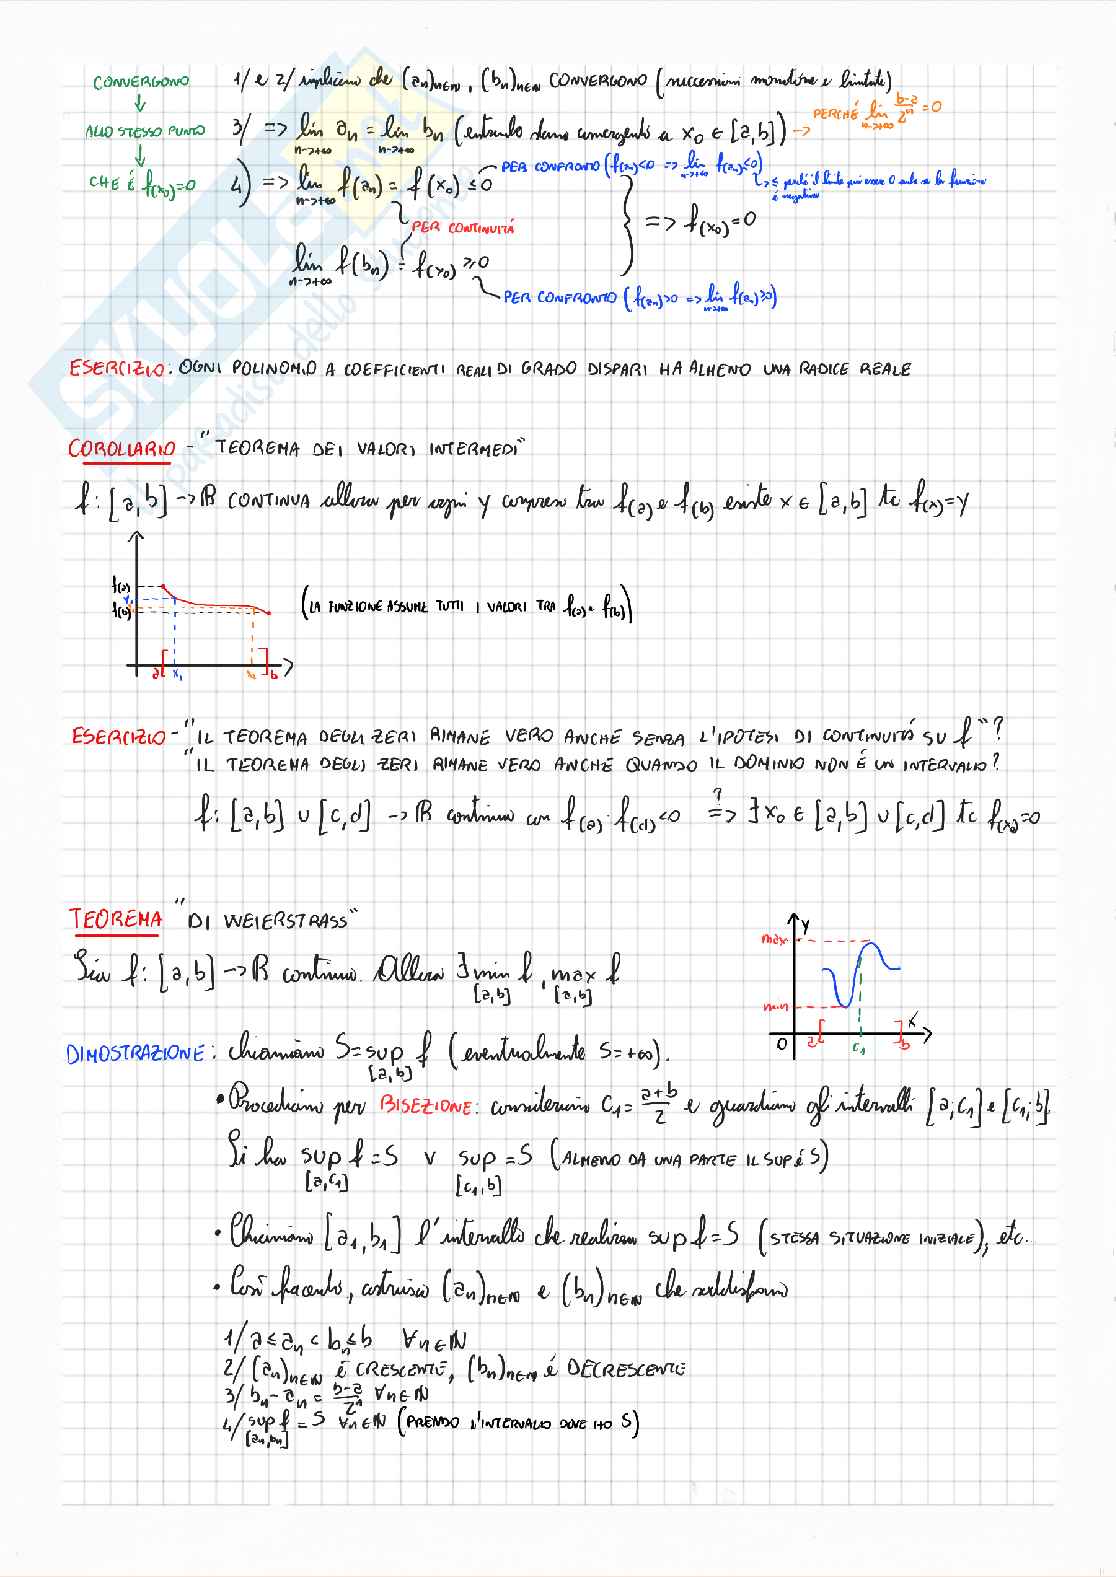 CONVERGONO 1/ e 2/ implicano che (an)n∈N, (bn)n∈N CONVERGONO (successioni monotone e limitate)
↓
ALLO STESSO PUNTO 3/ => lim n->+∞ an = lim n->+∞ bn (entrambe sono convergenti a x0 ∈ [a,b]) -> PERCHÉ lim n->+∞ b-a/2^n = 0
↓
CHE É f(x0)=0 4) => lim n->+∞ f(an) = f(x0) ≤ 0 PER CONFRONTO (f(an)<0 => lim n->+∞ f(an)≤0)
-> ≤ perché il limite può essere 0 anche se la funzione
é negativa
PER CONTINUITÁ
=> f(x0)=0
lim n->+∞ f(bn) = f(x0) ≥ 0
PER CONFRONTO (f(an)>0 => lim n->+∞ f(an)≥0)
ESERCIZIO: OGNI POLINOMIO A COEFFICIENTI REALI DI GRADO DISPARI HA ALMENO UNA RADICE REALE
COROLLARIO - "TEOREMA DEI VALORI INTERMEDI"
f: [a,b] -> R CONTINUA allora per ogni y compreso tra f(a) e f(b) esiste x ∈ [a,b] tc f(x)=y
f(a)
y1
f(b)
(LA FUNZIONE ASSUME TUTTI I VALORI TRA f(a) e f(b))
a x1 x2 b
ESERCIZIO - "IL TEOREMA DEGLI ZERI RIMANE VERO ANCHE SENZA L'IPOTESI DI CONTINUITÁ SU f"?
"IL TEOREMA DEGLI ZERI RIMANE VERO ANCHE QUANDO IL DOMINIO NON É UN INTERVALLO?
f: [a,b] ∪ [c,d] -> R continua con f(a)·f(d)<0 ?=> ∃ x0 ∈ [a,b] ∪ [c,d] tc f(x0)=0
TEOREMA "DI WEIERSTRASS"
Sia f: [a,b] -> R continua. Allora ∃ min [a,b] f, max [a,b] f
y
max
min
x
0 a c1 b
DIMOSTRAZIONE: chiamiamo S=sup [a,b] f (eventualmente S=+∞).
• Procediamo per BISEZIONE: consideriamo c1 = a+b/2 e guardiamo gli intervalli [a;c1] e [c1;b].
Si ha sup [a,c1] f = S ∨ sup [c1,b] = S (ALMENO DA UNA PARTE IL SUP É S)
• Chiamiamo [a1,b1] l'intervallo che realizza sup f = S (STESSA SITUAZIONE INIZIALE), etc.
• Così facendo, costruisco (an)n∈N e (bn)n∈N che soddisfano
1/ a ≤ an < bn ≤ b ∀n∈N
2/ (an)n∈N é CRESCENTE, (bn)n∈N é DECRESCENTE
3/ bn - an = b-a/2^n ∀n∈N
4/ sup [an,bn] f = S ∀n∈N (PRENDO L'INTERVALLO DOVE HO S)